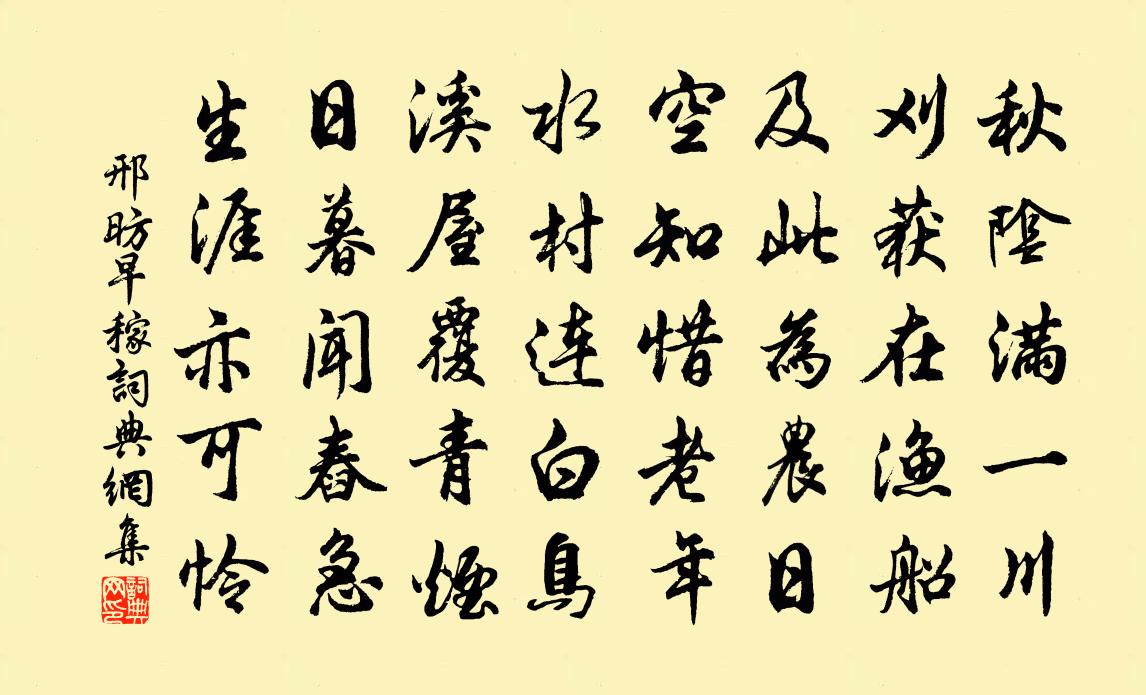 秋陰滿一川
刈获在漁船
及此為農日
空知惜老年
水村連白鳥
溪屋覆青煙
日暮聞舂急
生涯亦可怜
邢昉早稼詞典網集
詞典网印